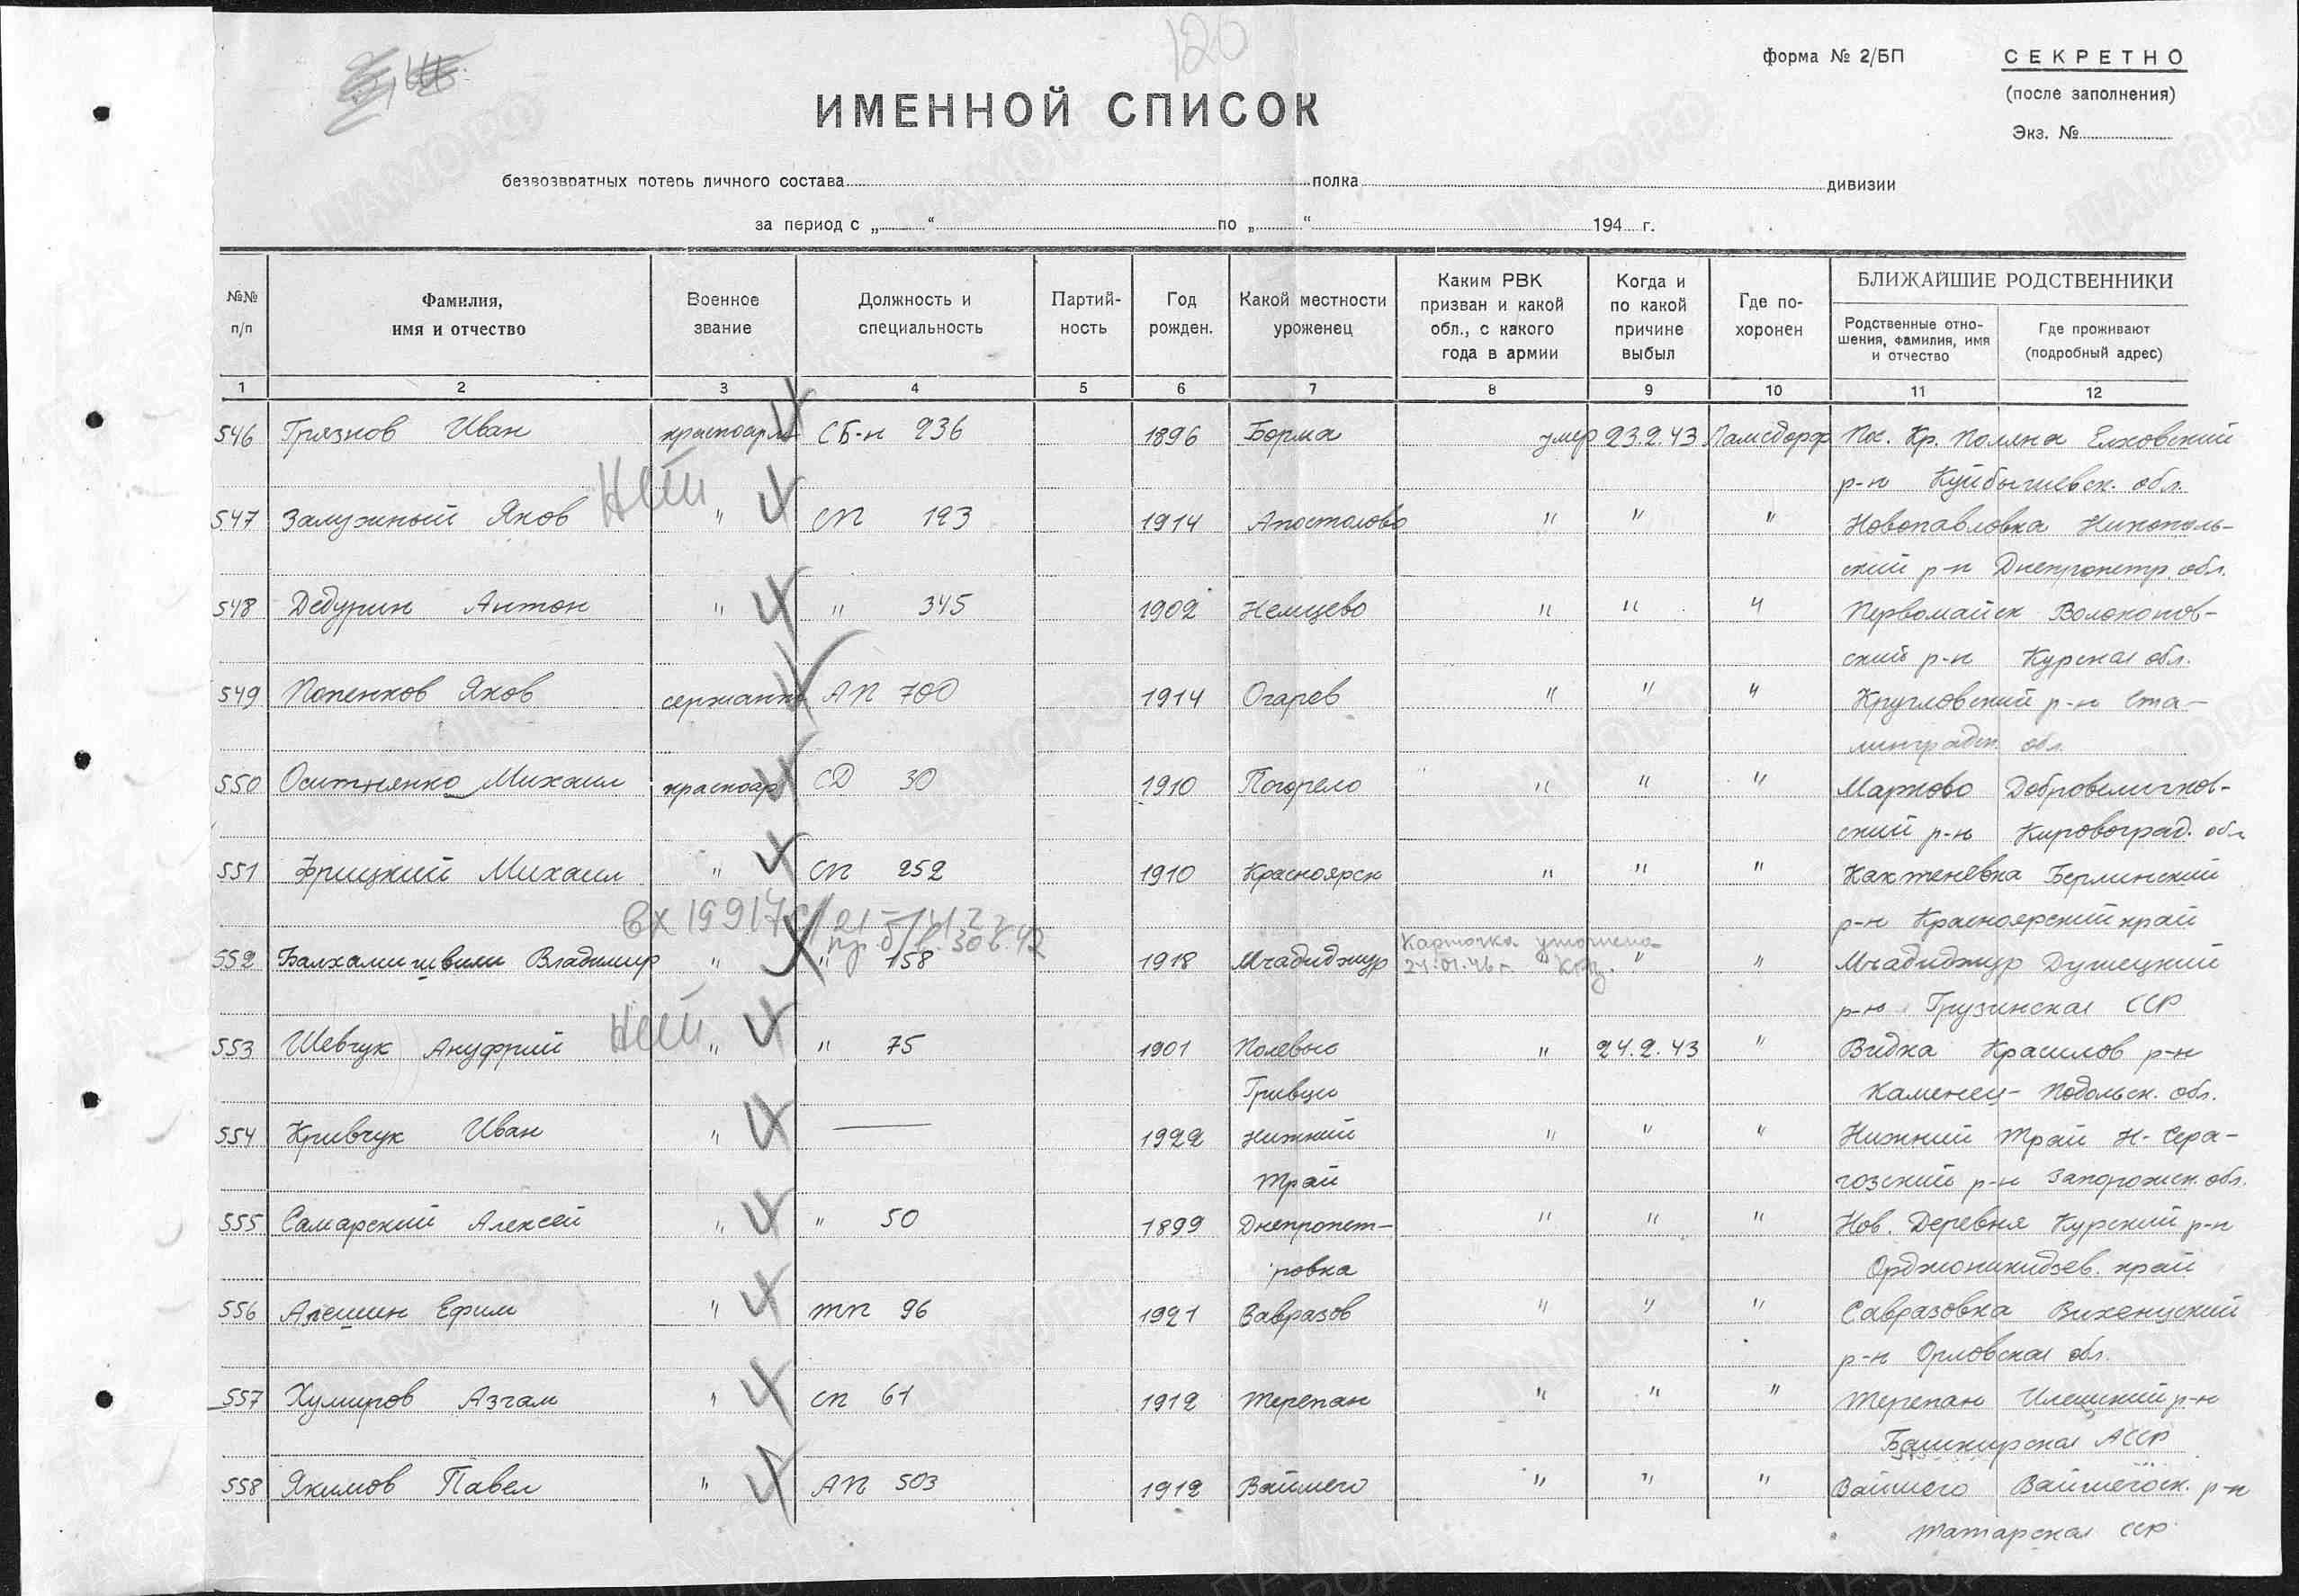 120
форма № 2/БП
СЕКРЕТНО
(после заполнения)
Экз. №
ИМЕННОЙ СПИСОК
безвозвратных потерь личного состава полка дивизии
за период с „ “ по „ “ 194 г.
№№ п/п
Фамилия, имя и отчество
Военное звание
Должность и специальность
Партий-ность
Год рожден.
Какой местности уроженец
Каким РВК призван и какой обл., с какого года в армии
Когда и по какой причине выбыл
Где по-хоронен
БЛИЖАЙШИЕ РОДСТВЕННИКИ
Родственные отно-шения, фамилия, имя и отчество
Где проживают (подробный адрес)
1 2 3 4 5 6 7 8 9 10 11 12
546 Грязнов Иван красноарм СБ-н 236 1896 Борма умер 23.2.43 Ламсдорф Пос. Кр. Поляна Елховский
р-н Куйбышевск. обл.
нет
547 Залужный Яков " СП 123 1914 Апостолово " " " Новопавловка Никополь-
ский р-н Днепропетр. обл.
548 Дедурин Антон " " 345 1902 Немцево " " " Первомайск Волоконов-
ский р-н Курская обл.
549 Попенков Яков сержант АП 700 1914 Огарев " " " Кругловский р-н Ста-
линградск. обл.
550 Оситнянко Михаил красноар СД 30 1910 Погорело " " " Марково Добровеличков-
ский р-н Кировоград. обл
551 Фрицкий Михаил " СП 252 1910 Красноярск " " " Кахтеневка Берлинский
р-н Красноярский край
вх 19917с
Карточка уточнена
552 Балхамишвили Владимир " " 158 1918 Мчадиджур 21.01.46 г. " " Мчадиджур Душецкий
р-н Грузинская ССР
нет
553 Шевчук Ануфрий " " 75 1901 Полевые " 24.2.43 " Видка Красилов р-н
Гривцы Каменец-Подольск. обл.
554 Кривчук Иван " — 1922 Нижний " " " Нижний Трай Н-Сера-
Трай гозский р-н Запорожск. обл.
555 Самарский Алексей " " 50 1899 Днепропет- " " " Нов. Деревня Курский р-н
ровка Орджоникидзев. край
556 Алешин Ефим " ТП 96 1921 Завразов " " " Савразовка Вихенцский
р-н Орловская обл.
557 Хумиров Азгам " СП 61 1912 Терепан " " " Терепан Илешкий р-н
Башкирская АССР
558 Якимов Павел " АП 503 1912 Ваймего " " " Вайшего Вайшегоск. р-н
Татарская ССР